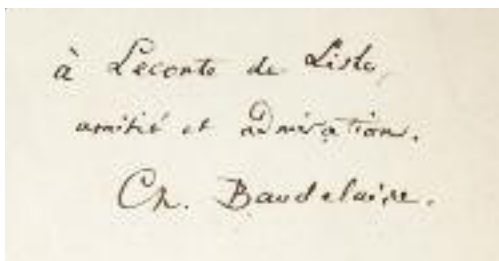 à Leconte de Lisle,
amitié et admiration.
Ch. Baudelaire.